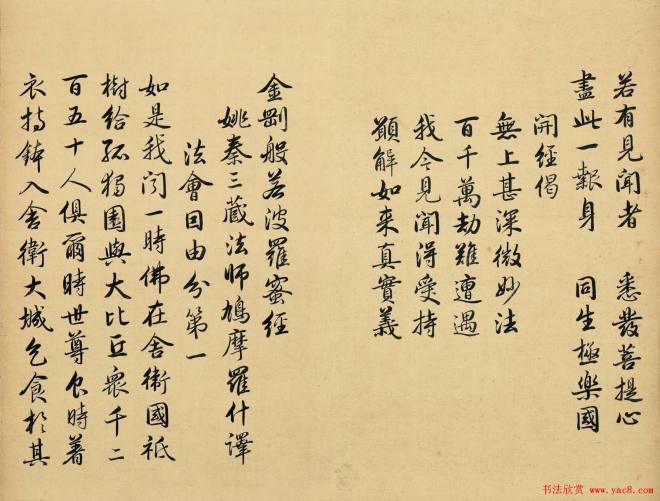 若有見聞者 悉發菩提心
盡此一報身 同生極樂國
開經偈
無上甚深微妙法
百千萬劫難遭遇
我今見聞得受持
願解如來真實義
金剛般若波羅蜜經
姚秦三藏法師鳩摩羅什譯
法會因由分第一
如是我聞一時佛在舍衛國祇
樹給孤獨園與大比丘眾千二
百五十人俱爾時世尊食時著
衣持鉢入舍衛大城乞食於其
书法欣赏 www.yac8.com